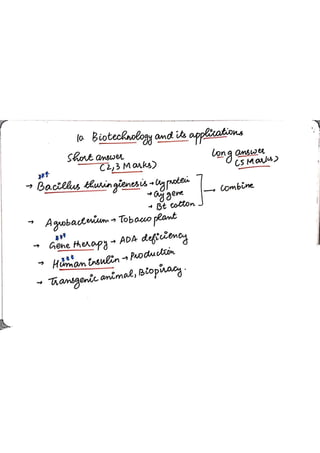 10 Biotechnology and its applications
Short answer
(2,3 Marks)
Long answer
(5 Marks)
→ Bacillus thuringienesis → cry protein
→ cry gene
→ Bt cotton
→ combine
→ Agrobacterium → Tobacco plant
→ Gene therapy → ADA deficiency
→ Human insulin → Production
→ Transgenic animal, Biopiracy.